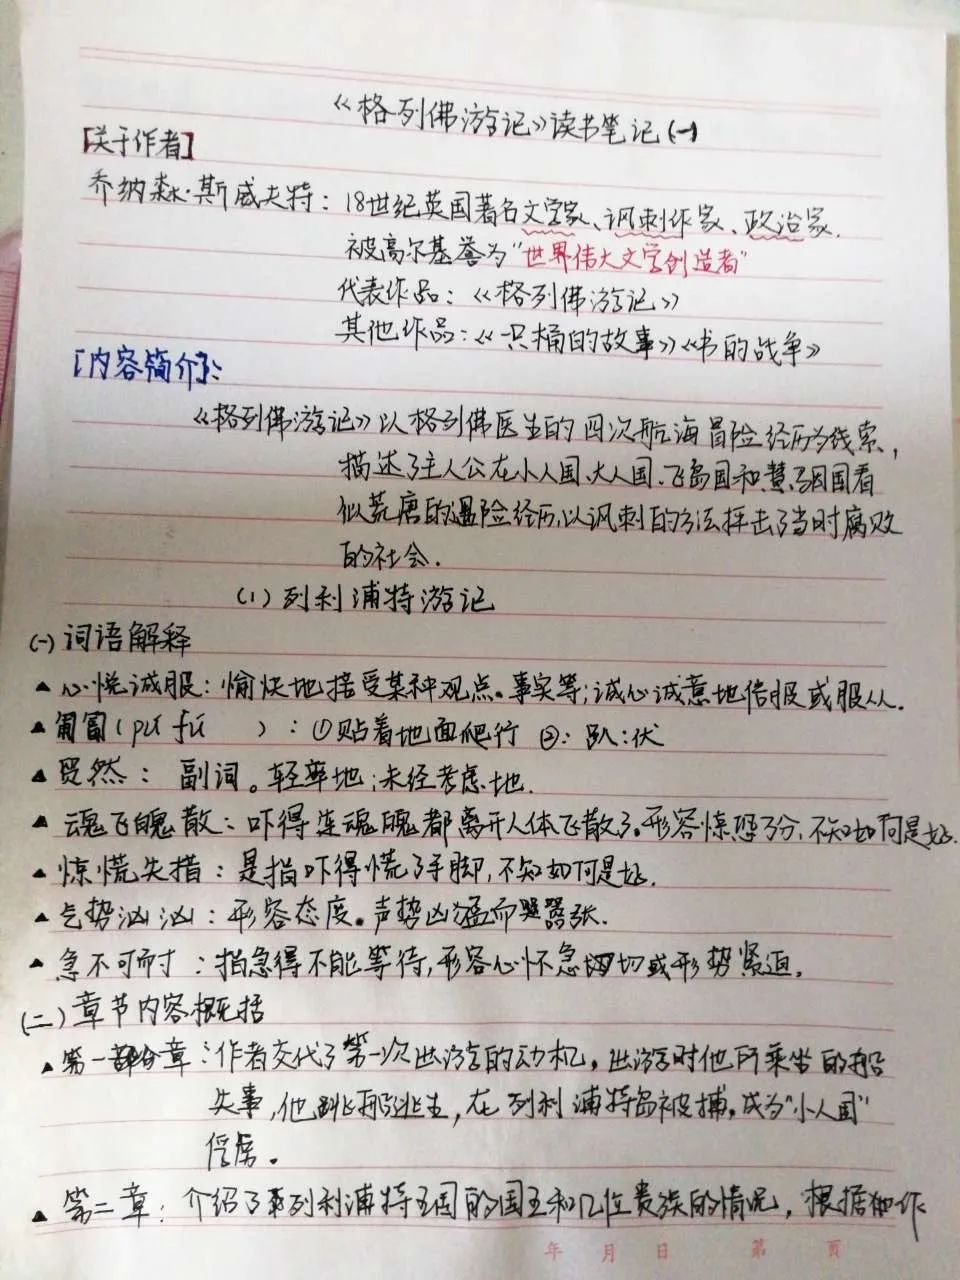 《格列佛游记》读书笔记(一)
[关于作者]
乔纳森·斯威夫特：18世纪英国著名文学家、讽刺作家、政治家.
被高尔基誉为"世界伟大文学创造者"
代表作品：《格列佛游记》
其他作品：《一只桶的故事》《书的战争》
[内容简介]：
《格列佛游记》以格列佛医生的四次航海冒险经历为线索,
描述了主人公在小人国、大人国、飞岛国和慧骃国看
似荒唐的遇险经历,以讽刺的方法抨击了当时腐败
的社会.
(1)列利浦特游记
(一)词语解释
▲心悦诚服：愉快地接受某种观点。事实等;诚心诚意地信服或服从.
▲匍匐(pú fú )：①贴着地面爬行 ②：趴：伏
▲ 然：副词。轻率地;未经考虑地.
▲魂飞魄散：吓得连魂魄都离开人体飞散了。形容惊恐万分,不知如何是好.
▲惊慌失措：是指吓得慌了手脚,不知如何是好.
▲气势汹汹：形容态度。声势凶猛而嚣张.
▲急不可耐：指急得不能等待,形容心怀急切或形势紧迫.
(二)章节内容概括
▲第一章：作者交代了第一次出游的动机。出游时他所乘坐的船
失事,他跳船逃生,在列利浦特岛被捕。成为"小人国"
俘虏。
▲第二章：介绍了列利浦特王国的国王和几位贵族的情况，根据他作
年 月 日 第 页